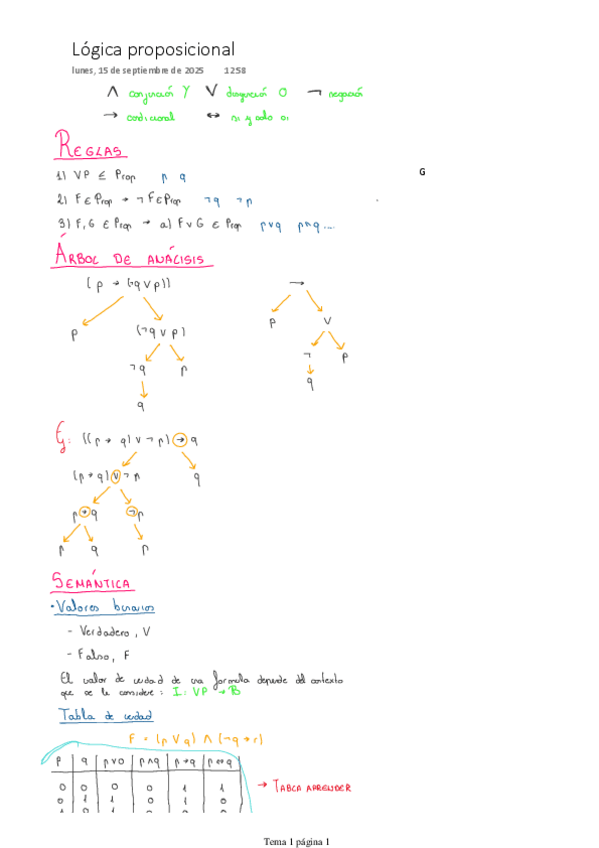 Lógica proposicional
lunes, 15 de septiembre de 2025 12:58
∧ conjunción Y ∨ disyunción O ¬ negación
→ condicional ↔ si y solo si
REGLAS
1) VP ⊆ Prop p q
G
2) F ∈ Prop → ¬F ∈ Prop ¬q ¬p
3) F, G ∈ Prop → a) F ∨ G ∈ Prop p∨q p∧q ....
ÁRBOL DE ANÁLISIS
(p → (¬q ∨ p)) →
p (¬q ∨ p) p ∨
¬q p ¬ p
q q
Ej: ((p → q) ∨ ¬p) → q
(p → q) ∨ ¬p q
p → q ¬p
p q p
SEMÁNTICA
• Valores binarios
- Verdadero, V
- Falso, F
El valor de verdad de una formula depende del contexto
que se le considere: I: VP → B
Tabla de verdad
F = (p ∨ q) ∧ (¬q → r)
p q p∨q p∧q p→q p↔q
0 0 0 0 1 1 → TABLA APRENDER
0 1 1 0 1 0
Tema 1 página 1